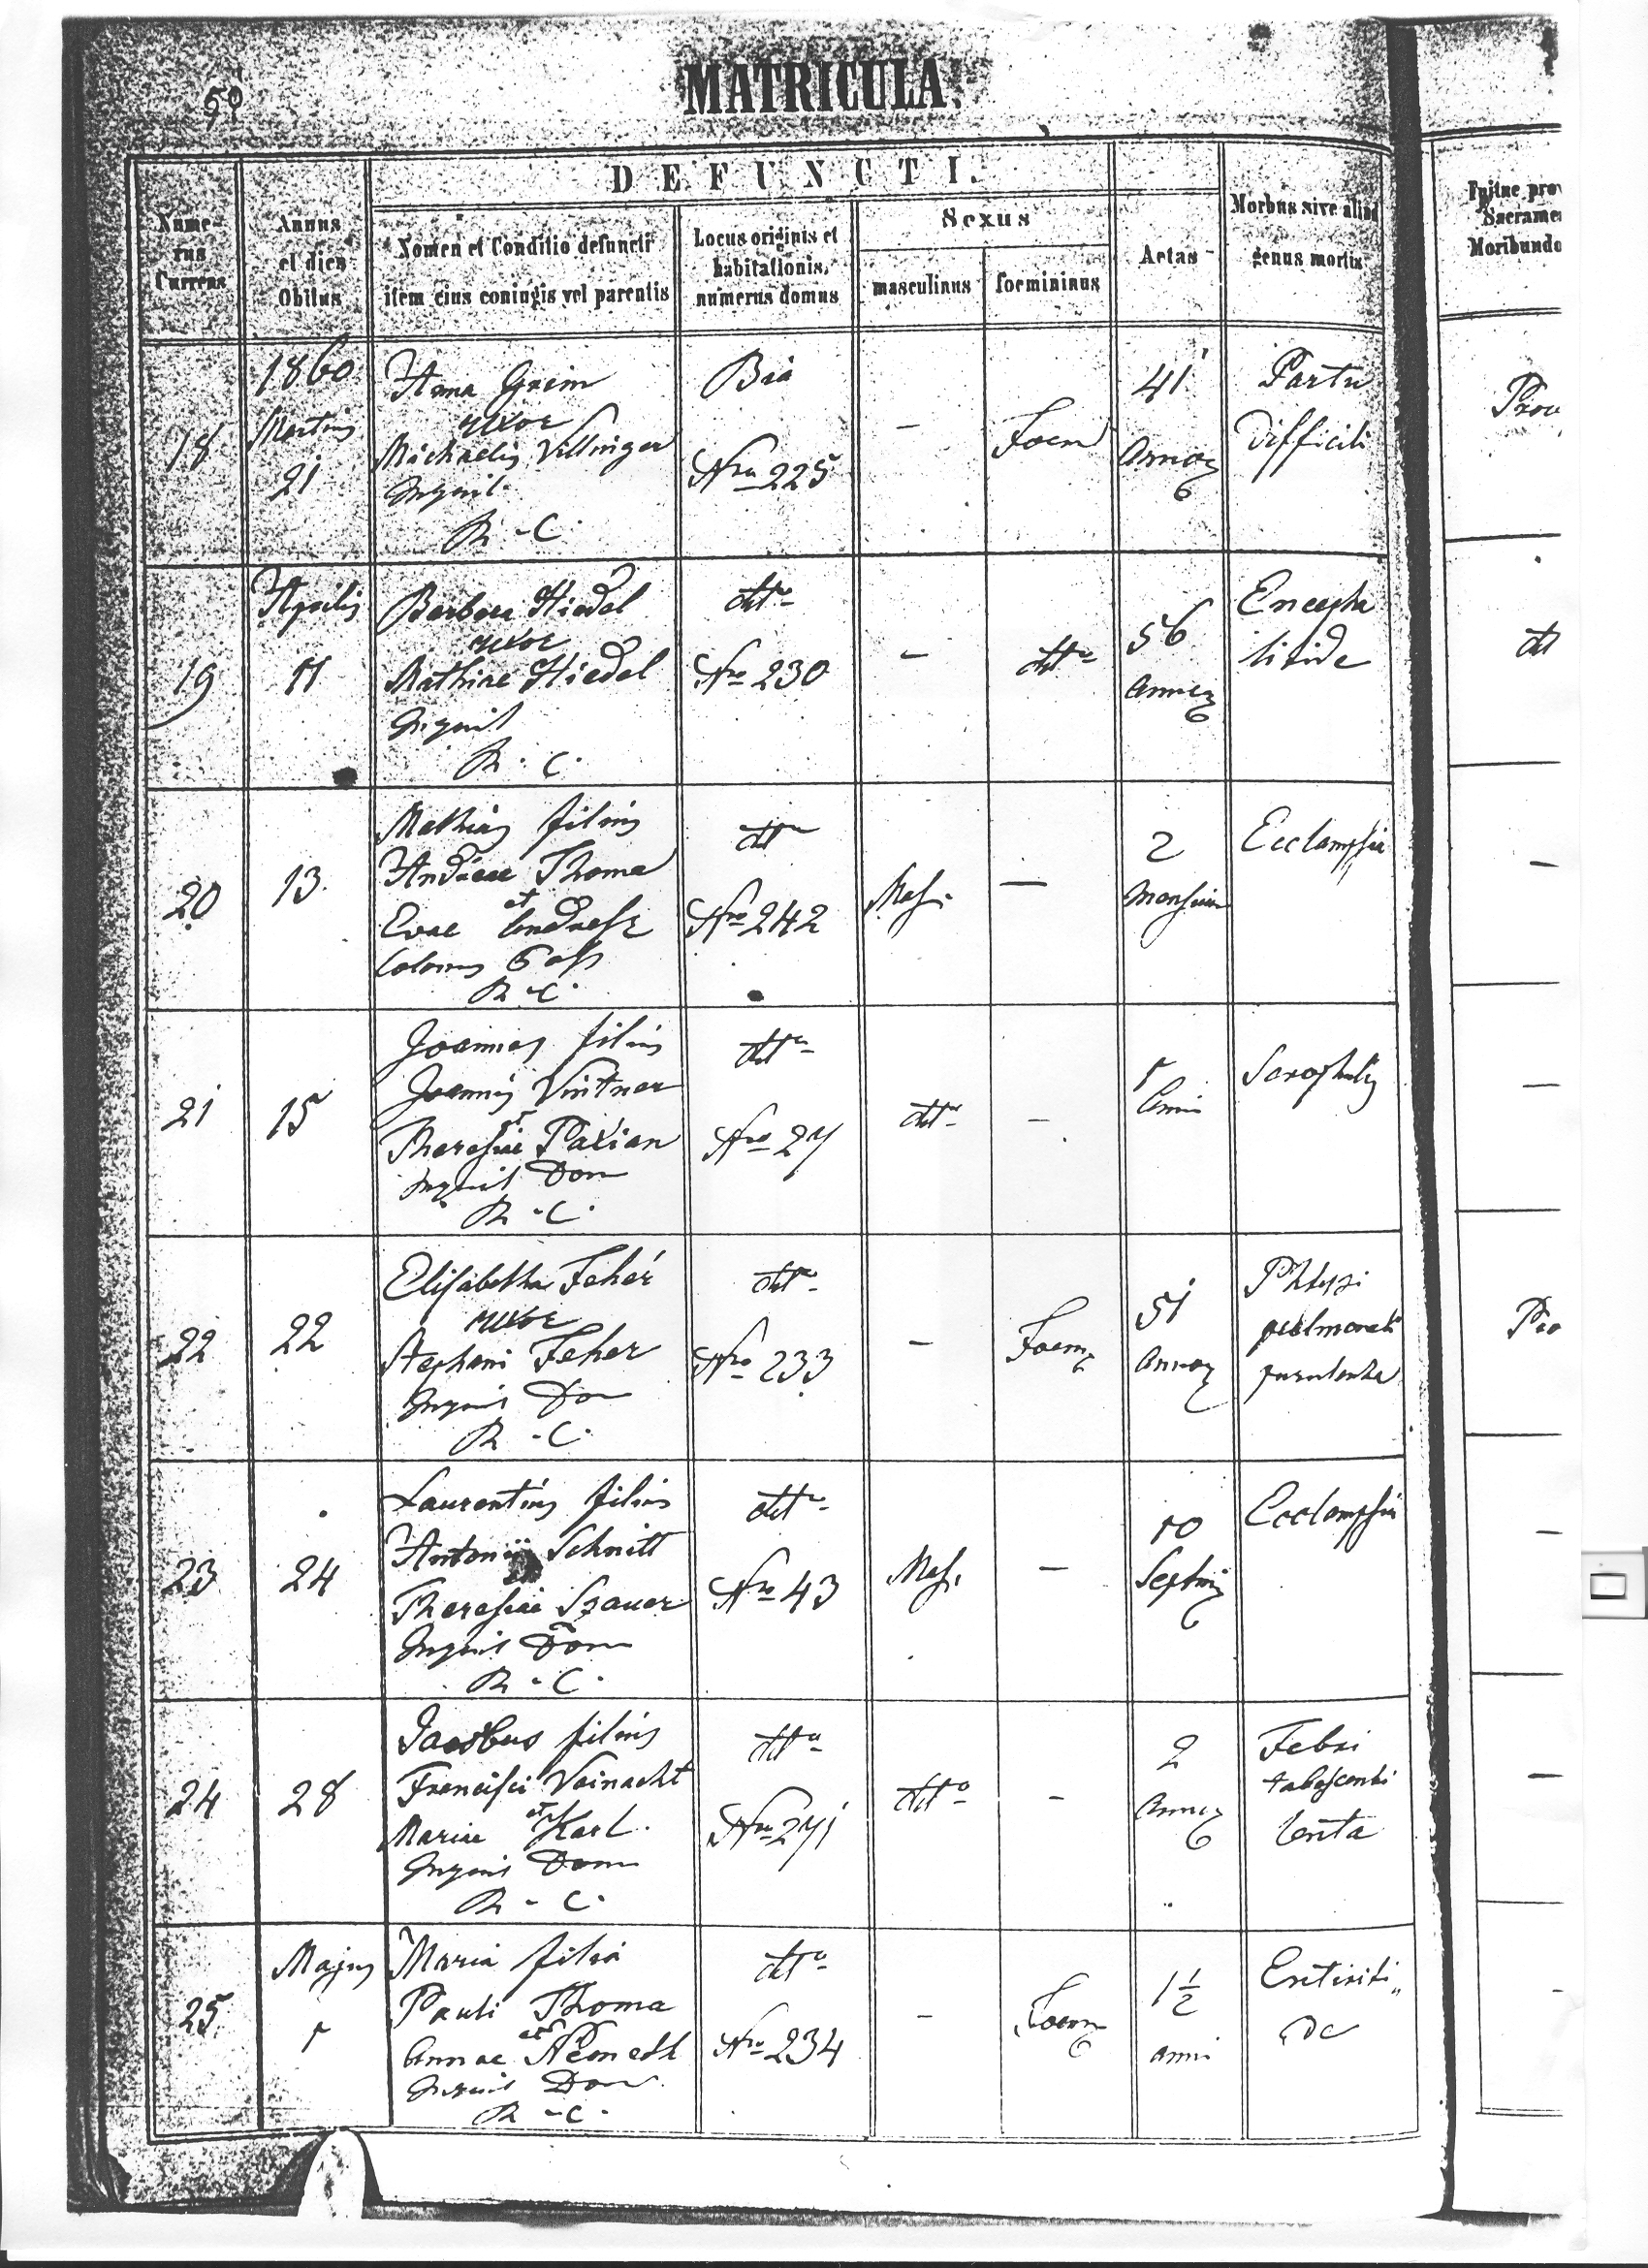 59
MATRICULA.
DEFUNCTI.
Nume-
rus
Currens
Annus
et dies
Obitus
Nomen et Conditio defuncti
item eius coniugis vel parentis
Locus originis et
habitationis,
numerus domus
Sexus
masculinus
foemininus
Aetas
Morbus sive aliud
genus mortis
18
1860
Martius
21
Anna Greim
uxor
Michaelis Villinger
Inquil.
R. C.
Bia
Nro 225
-
Foem
41
Annor
Partu
difficili
19
Aprilis
11
Barbara Hiedel
uxor
Mathiae Hiedel
Inquil
R. C.
dtto
Nro 230
-
dtto
56
Annor
Encepha
litide
20
13.
Mathias filius
Andreae Thoma
et
Evae
Colonus
R. C.
dtto
Nro 242
Mas.
-
2
Mensium
Ecclampsia
21
15
Joannes filius
Joannis Vintner
et
Theresiae Paxian
Inquil Dom
R. C.
dtto
Nro 27
dtto
-
1
Anni
Scrophulis
22
22
Elisabetha Fehér
uxor
Stephani Feher
Inquil Dom
R. C.
dtto
Nro 233
-
Foem
51
Annor
Phtysi
pulmonali
purulenta
23
24
Laurentius filius
Antonii Schnitt
Theresiae Szauer
Inquil Dom
R. C.
dtto
Nro 43
Mas.
-
10
Septim
Ecclampsia
24
28
Jacobus filius
Francisci Veinacht
et
Mariae Karl.
Inquil Dom
R. C.
dtto
Nro 271
dtto
-
2
Annor
Febri
tabescenti
lenta
25
Majus
1
Maria filia
Pauli Thoma
et
Annae Németh
Inquil Dom
R. C.
dtto
Nro 234
-
Foem
1 1/2
anni
Entiriti„
de